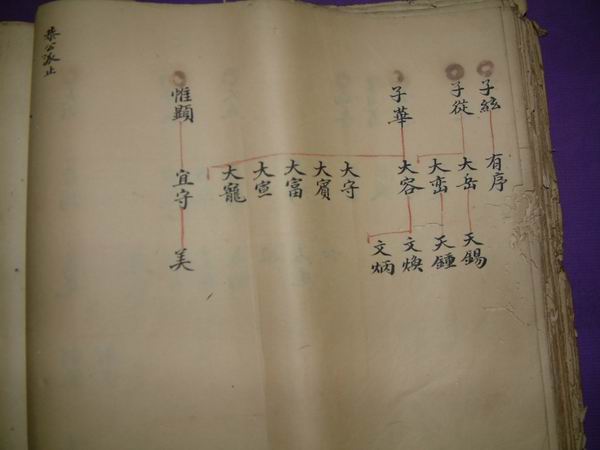 子絃
有序
子從
大岳
天錫
大峦
天鍾
子華
大容
文煥
文炳
大守
大賓
大富
大宣
大寵
惟顯
宜守
美
恭公派止